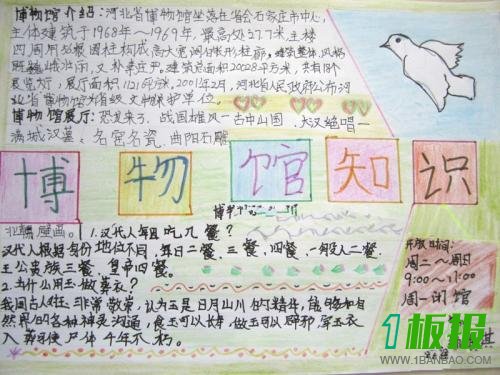 博物馆介绍：河北省博物馆坐落在省会石家庄市中心，
主体建筑于1968年～1969年，最高处27.7米，主楼
四周用
圆柱构成高大宽
形柱廊，建筑整体，风格
又朴素庄严。建筑总面积20028平方米，共有18个
展览厅，展厅面积
平方米，2001年2月，河北省人民政府公布河
北省博物馆为省级文物保护单位。
博物馆展厅：恐龙来了、战国雄风—古中山国、大汉绝唱—
满城汉墓、名窑名瓷、曲阳石雕
博物馆知识
北
壁画。1.汉代人每日吃几餐？
汉代人根据身份地位不同，每日二餐、三餐、四餐、一般人二餐、
王公贵族三餐、皇帝四餐。
2.为什么用玉做葬衣？
我国古人对玉非常敬崇，认为玉是日月山川的精华，能够和自
然界的各种神灵沟通，食玉可以长寿，做玉可以辟邪，穿玉衣
入葬可使尸体千年不朽。
开放时间：
周二～周日
9:00～
周一闭馆
1板报
WWW.1BANBAO.COM